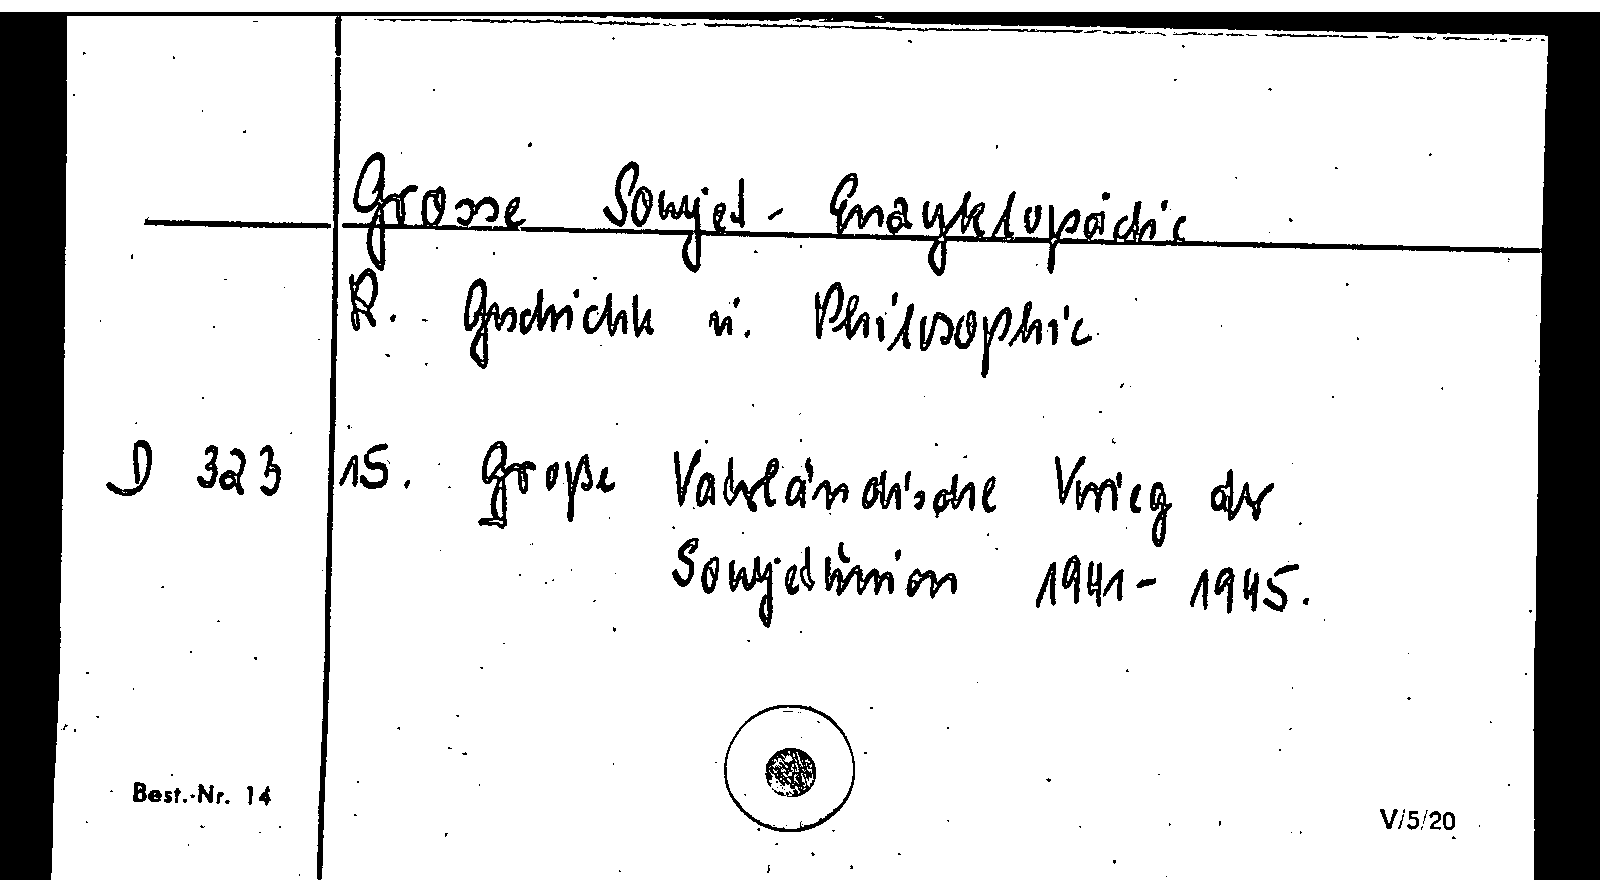 Grosse Sowjet-Enzyklopädie
R. Geschichte u. Philosophie
D 323 15. Große Vaterländische Krieg der
Sowjetunion 1941-1945.
Best.-Nr. 14
V/5/20